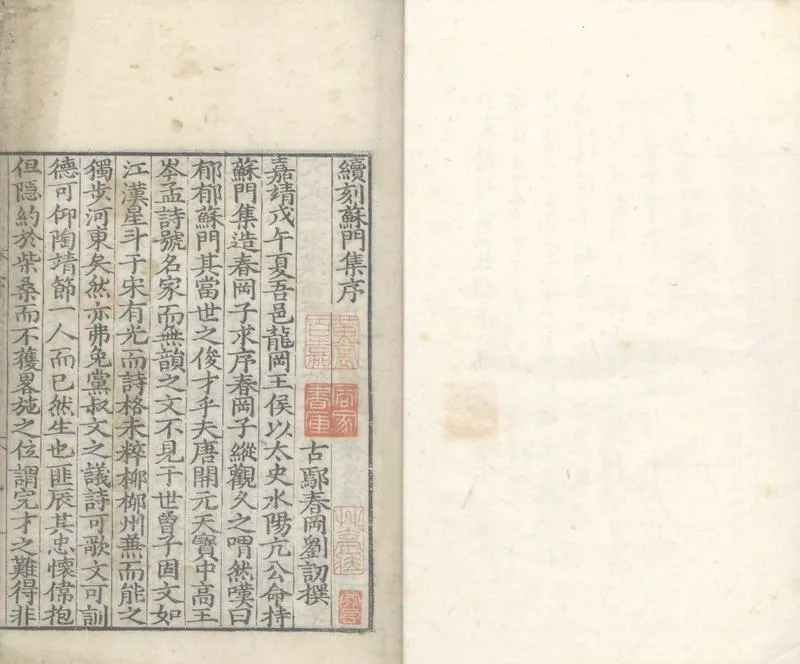 續刻蘇門集序
古鄢春岡劉訒撰
嘉靖戊午夏吾邑龍岡王侯以太史水陽亢公命持
蘇門集造春岡子求序春岡子縱觀久之喟然嘆曰
郁郁蘇門其當世之俊才乎夫唐開元天寶中高王
岑孟詩號名家而無韻之文不見于世曾子固文如
江漢星斗于宋有光而詩格未粹柳柳州兼而能之
獨步河東矣然亦弗免黨叔文之議詩可歌文可訓
德可仰陶靖節一人而已然生也匪辰其忠懷偉抱
但隱約於柴桑而不獲畧施之位謂完才之難得非
周家
書庫